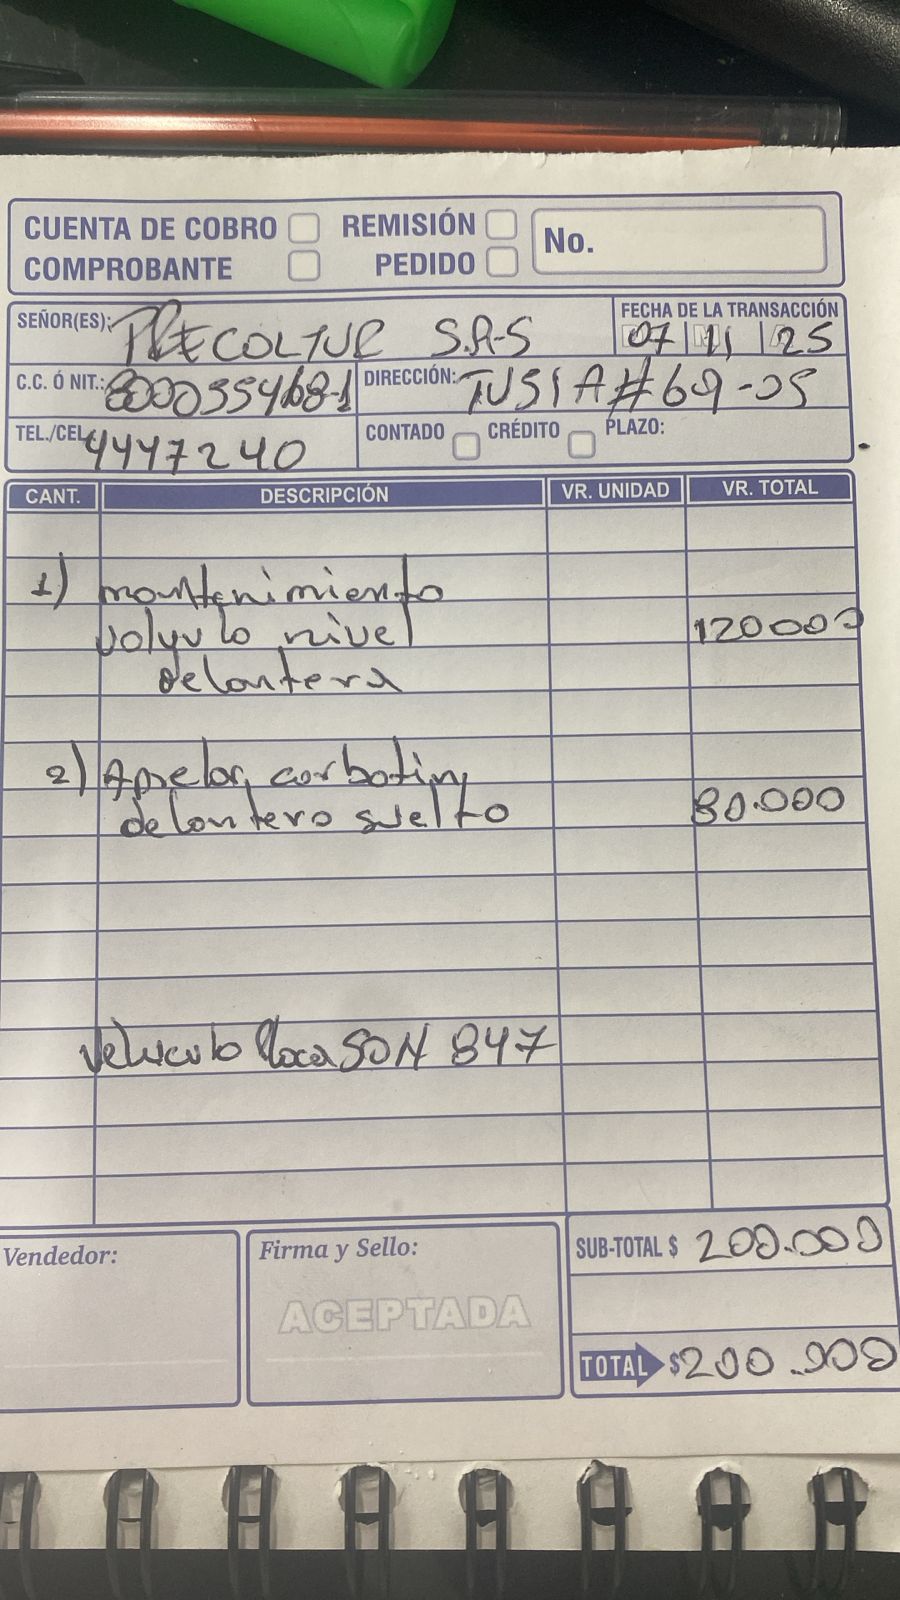 CUENTA DE COBRO REMISIÓN No.
COMPROBANTE PEDIDO
SEÑOR(ES): PRECOLTUR S.A-S FECHA DE LA TRANSACCIÓN
07 11 25
C.C. Ó NIT.: 8000354168-1 DIRECCIÓN: TUS1A#69-05
TEL./CEL 4447240 CONTADO CRÉDITO PLAZO:
CANT. DESCRIPCIÓN VR. UNIDAD VR. TOTAL
1) mantenimiento
nivel 120000
delantera
2) Apretar carbotin
delantero suelto 80.000
vehiculo Placa SON 847
Vendedor: Firma y Sello: SUB-TOTAL $ 200.000
ACEPTADA
TOTAL $200.000